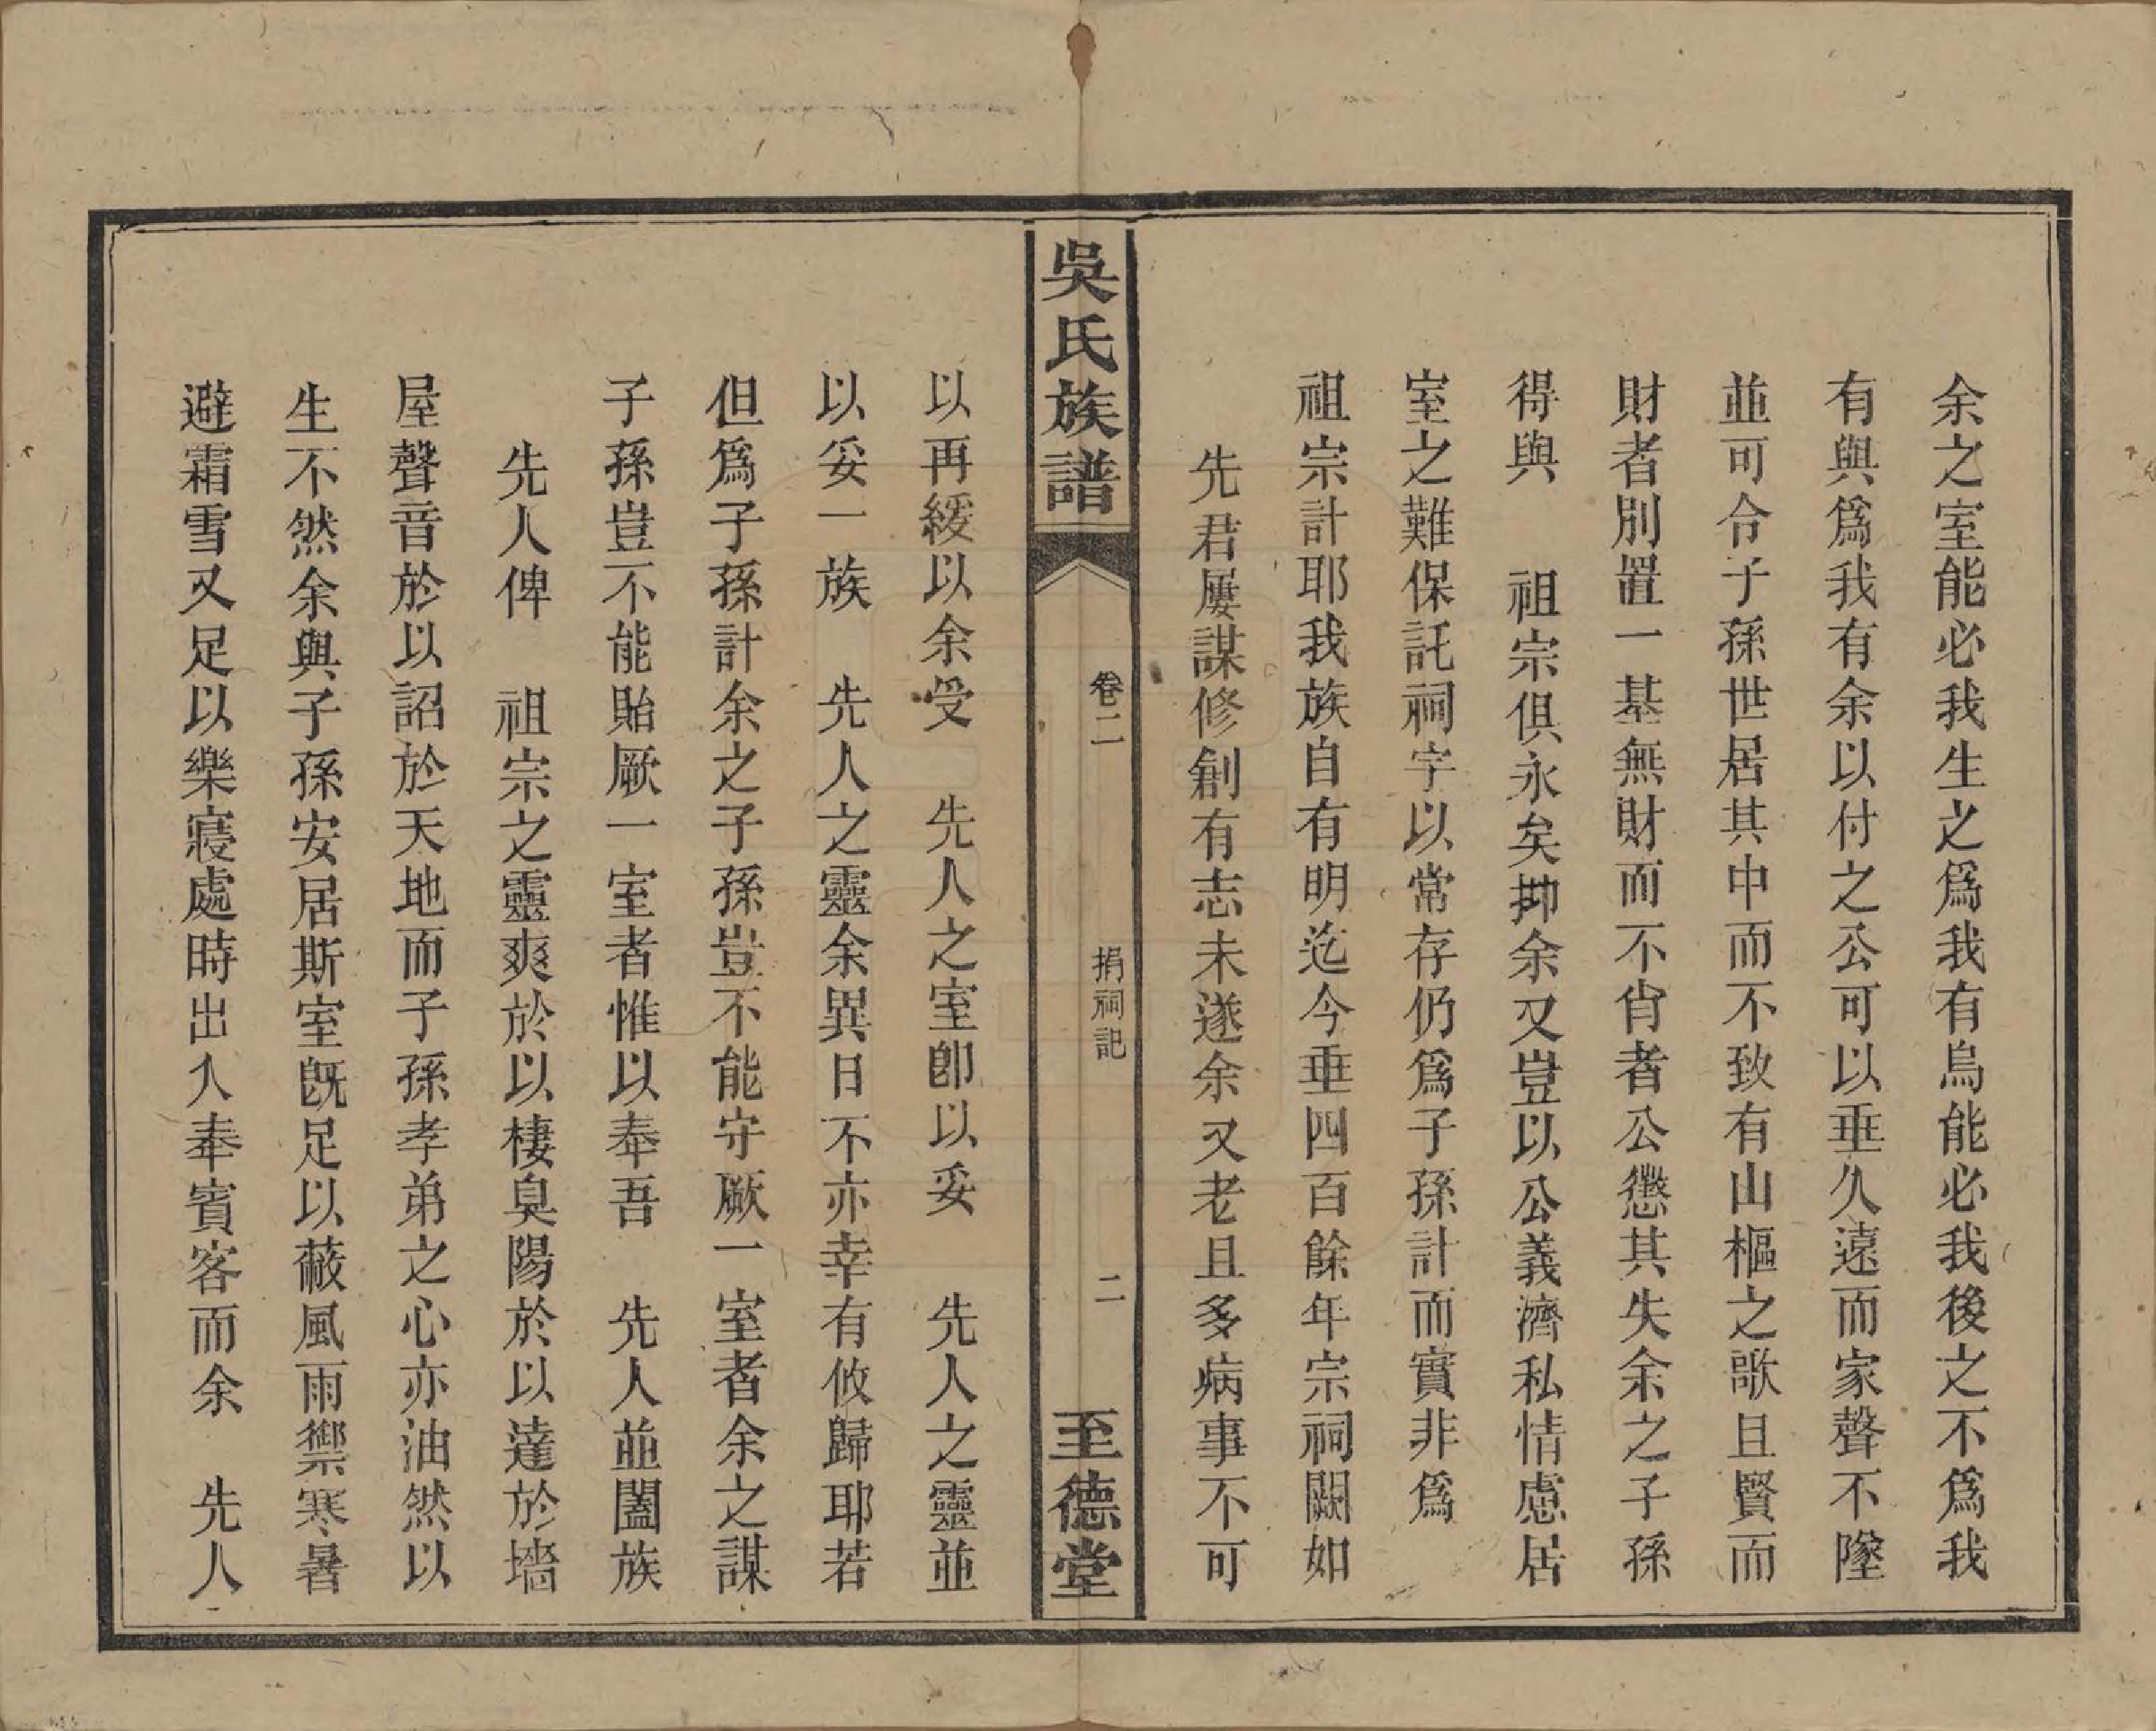 余之室能必我生之爲我有烏能必我後之不爲我
有與爲我有余以付之公可以垂久遠而家聲不墜
並可令子孫世居其中而不致有山樞之歌且賢而
財者別置一基無財而不肖者公懲其失余之子孫
得與　祖宗俱永矣抑余又豈以公義濟私情慮居
室之難保託祠宇以常存仍爲子孫計而實非爲
祖宗計耶我族自有明迄今垂四百餘年宗祠闕如
先君屢謀修創有志未遂余又老且多病事不可
吳氏族譜
卷二
捐祠記
二
至德堂
以再緩以余受　先人之室卽以妥　先人之靈並
以妥一族　先人之靈余異日不亦幸有攸歸耶若
但爲子孫計余之子孫豈不能守厥一室者余之謀
子孫豈不能貽厥一室者惟以奉吾　先人並闔族
先人俾　祖宗之靈爽於以棲臭陽於以達於墻
屋聲音於以詔於天地而子孫孝弟之心亦油然以
生不然余與子孫安居斯室旣足以蔽風雨禦寒暑
避霜雪又足以樂寢處時出入奉賓客而余　先人